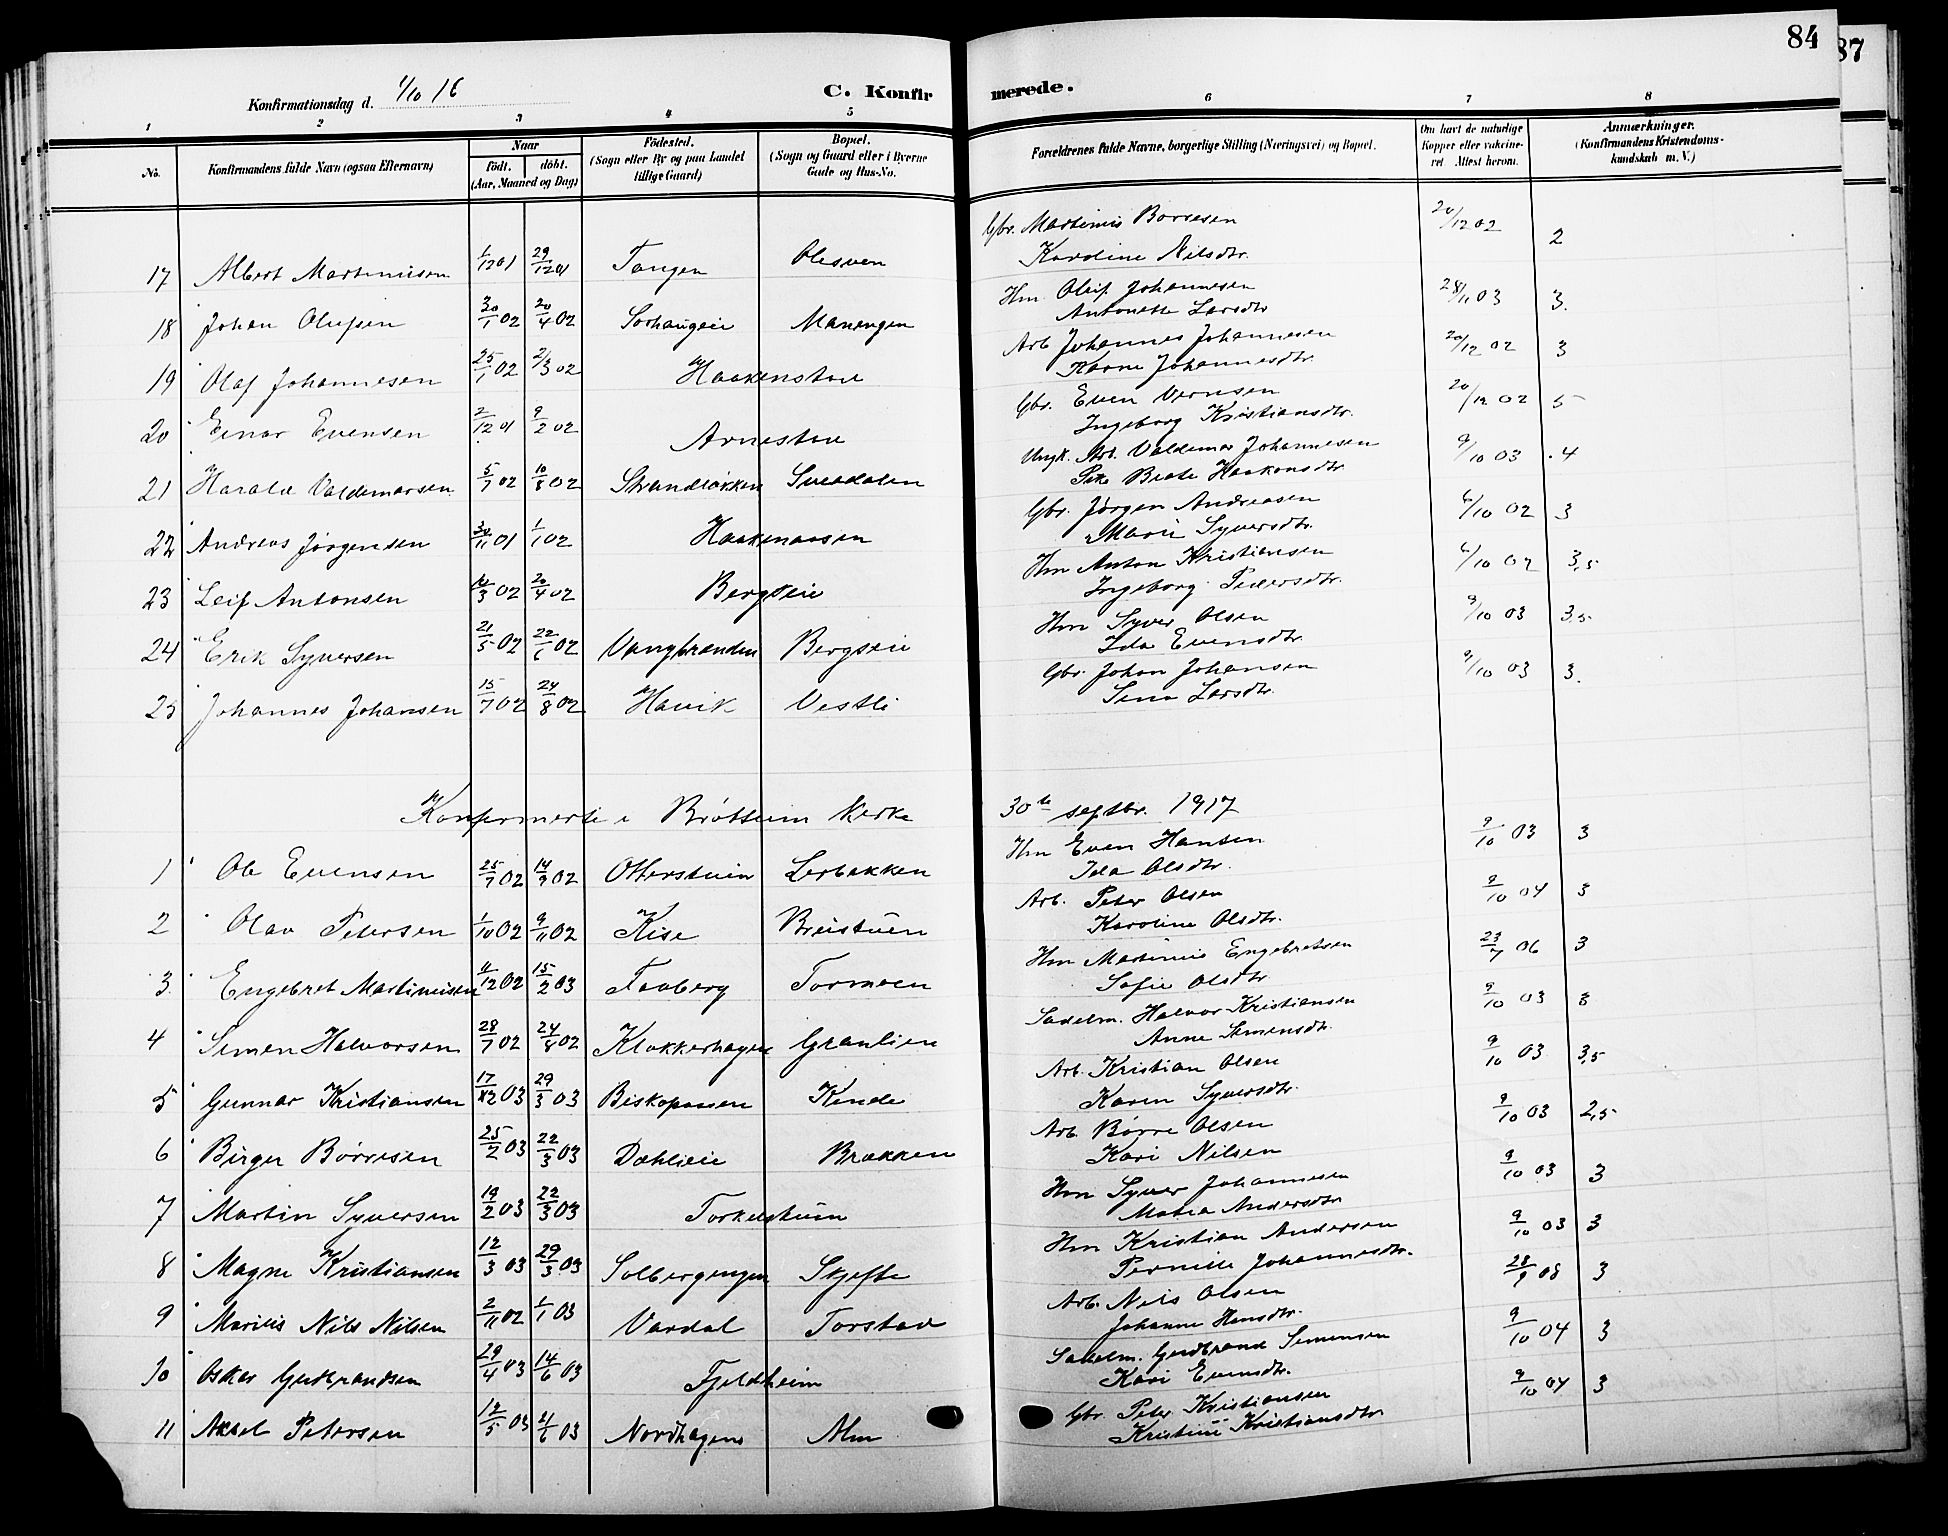 84
87
Konfirmationsdag d. 1/10 16
C. Konfirmerede.
1 2 3 4 5 6 7 8
No.
Konfirmandens fulde Navn (ogsaa Efternavn)
Naar
födt. döbt.
(Aar, Maaned og Dag)
Födested.
(Sogn eller By og paa Landet
tillige Gaard)
Bopæl.
(Sogn og Gaard eller i Byerne
Gade og Hus-No.
Forældrenes fulde Navne, borgerlige Stilling (Næringsvei) og Bopæl.
Om havt de naturlige
Kopper eller vakcine-
ret Attest herom.
Anmærkninger.
(Konfirmandens Kristendoms-
kundskab m. V.)
17 Albert Martiniusen 1/12 01 29/12 01 Tangen Olesveen Gbr. Martinius Børresen 20/12 02 2
Karoline Nilsdtr.
18 Johan Olufsen 30/1 02 20/4 02 Sorhaugeie Manengen Hm. Oluf Johannesen 28/11 03 3.
Antonette Larsdtr
19 Olaf Johannesen 25/1 02 2/3 02 Haakenstad Arb Johannes Johannesen 20/12 02 3
Karen Johannesdtr.
20 Einar Evensen 2/12 01 9/2 02 Arnestad Gbr. Even Evensen 20/12 02 5
Ingeborg Kristiansdtr.
21 Harald Valdemarsen 5/7 02 10/8 02 Strandløkken Sveadalen Ungk. Arb. Valdemar Johannesen 9/10 03 4
Pike Beate Haakonsdtr.
22 Andreas Jörgensen 30/11 01 1/1 02 Haakenaasen Gbr. Jørgen Andreasen 6/10 02 3
Marie Syversdtr.
23 Leif Antonsen 10/3 02 20/4 02 Bergseie Hm Anton Kristiansen 6/10 02 3,5
Ingeborg Pedersdtr.
24 Erik Syversen 21/5 02 22/6 02 Vangbranden Bergseie Hm Syver Olsen 9/10 03 3,5
Ida Evensdtr.
25 Johannes Johansen 15/7 02 24/8 02 Havik Vestli Gbr. Johan Johansen 9/10 03 3.
Sina Larsdtr.
Konfirmerte i Brøttum kirke 30te septbr. 1917
1 Ole Evensen 25/7 02 14/9 02 Otterstuen Lerbakken Hm Even Hansen 9/10 03 3
Ida Olsdtr.
2 Olav Petersen 1/10 02 9/11 02 Kise Breistuen Arb. Peter Olsen 9/10 04 3
Karoline Olsdtr.
3 Engebret Martiniusen 4/12 02 15/2 03 Faaberg Tormoen Hm Martinius Engebretsen 23/7 06 3
Sofie Olsdtr.
4 Simen Halvorsen 28/7 02 24/8 02 Klokkerhagen Granlien Sadelm. Halvor Kristiansen 9/10 03 3
Anne Simensdtr.
5 Gunnar Kristiansen 17/2 03 29/3 03 Biskopaasen Kinde Arb. Kristian Olsen 9/10 03 3,5
Karen Syversdtr.
6 Birger Börresen 25/2 03 22/3 03 Dæhlieie Brækken Arb. Børre Olsen 9/10 03 2,5
Kari Nilsen
7 Martin Syversen 19/2 03 22/3 03 Torkelstuen Hm Syver Johannesen 9/10 03 3
Matea Andersdtr
8 Magne Kristiansen 12/3 03 29/3 03 Solbergengen Skjefte Hm Kristian Andersen 9/10 03 3
Pernille Johannesdtr.
9 Marius Nils Nilsen 2/11 02 1/1 03 Vardal Torstad Arb. Nils Olsen 28/9 08 3
Johanne Hansdtr.
10 Oskar Gudbrandsen 29/4 03 14/6 03 Fjeldheim Sadelm. Gudbrand Simensen 9/10 04 3
Kari Evensdtr.
11 Aksel Petersen 12/5 03 21/6 03 Nordhagen Alm Gbr. Peter Kristiansen 9/10 04 3
Kristine Kristiansdtr